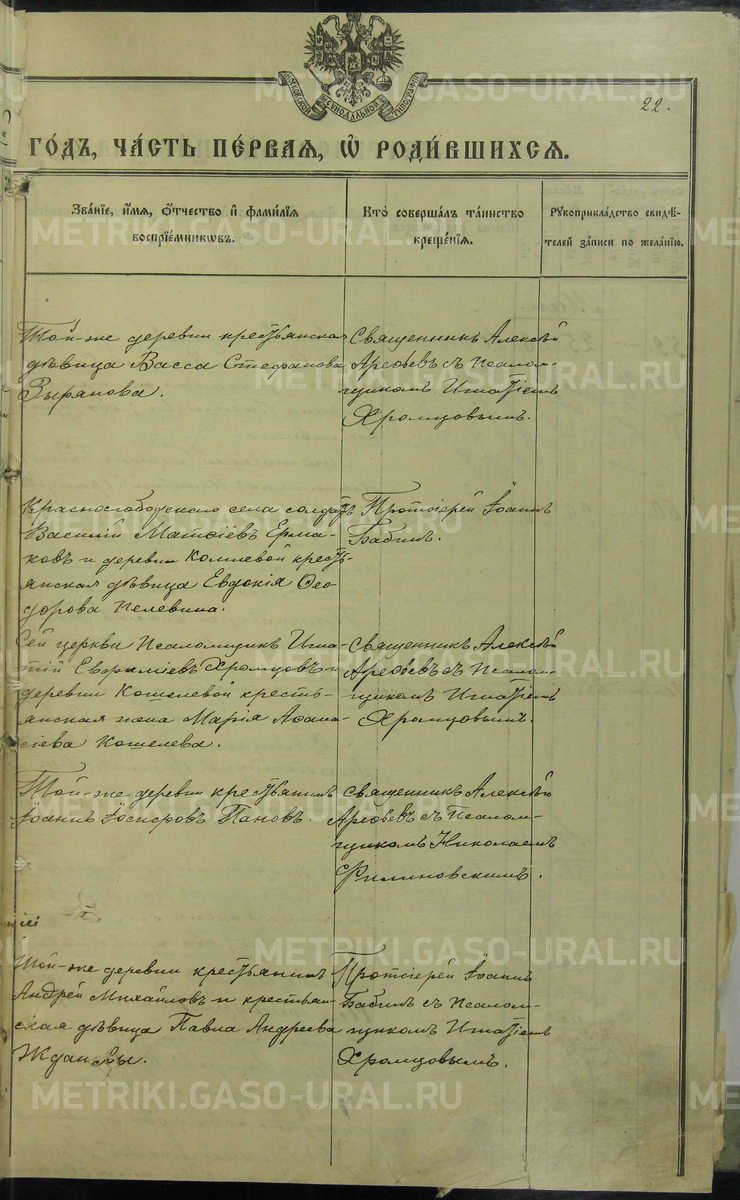 МОСКОВСКОЙ СУНОДАЛЬНОЙ ТИПОГРАФІИ
22.
ГОДЪ, ЧАСТЬ ПЕРВАЯ, Ѡ РОДИВШИХСЯ.
Званіе, имя, отчество и фамилія
воспріемникωвъ.
Кто совершалъ таинство
крещенія.
Рукоприкладство свидѣ-
телей записи по желанію.
Той-же деревни крестьянская
дѣвица Васса Стефанова
Зырянова.
Священникъ Алексѣй
Арефьевъ съ Псалом-
щикомъ Игнатіемъ
Хромцовымъ.
Краснослободскаго села солдатъ
Василій Матѳіевъ Ерма-
ковъ и деревни крестья-
янская дѣвица Евдокія Ѳео-
дорова Пелевина.
Протоіерей Іоаннъ
Бабинъ.
Сей церкви Псаломщикъ Игна-
тій Евфиміевъ Хромцовъ и
деревни Кошелевой кресть-
янская жена Марія Аѳана-
сіева Кошелева.
Священникъ Алексѣй
Арефьевъ съ Псалом-
щикомъ Игнатіемъ
Хромцовымъ.
Той-же деревни крестьянинъ
Іоаннъ Іосифовъ Пановъ.
Священникъ Алексѣй
Арефьевъ съ Псалом-
щикомъ Николаемъ
Филиновскимъ.
Той-же деревни крестьянинъ
Андрей Михайловъ и крестьян-
ская дѣвица Павла Андреева
Ждановы.
Протоіерей Іоаннъ
Бабинъ съ Псалом-
щикомъ Игнатіемъ
Хромцовымъ.
METRIKI.GASO-URAL.RU
METRIKI.GASO-URAL.RU
METRIKI.GASO-URAL.RU
METRIKI.GASO-URAL.RU
METRIKI.GASO-URAL.RU
METRIKI.GASO-URAL.RU
METRIKI.GASO-URAL.RU
METRIKI.GASO-URAL.RU